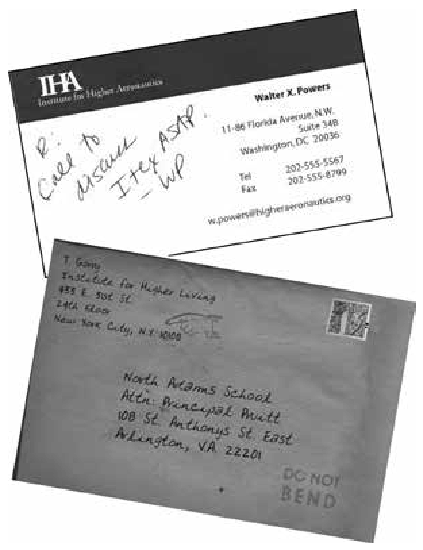 IHA
Institute for Higher Aeronautics
Walter X. Powers
11-86 Florida Avenue, N.W.
Suite 34B
Washington, DC 20036
Tel 202-555-5567
Fax 202-555-8799
w.powers@higheraeronautics.org
R:
Call to
discuss
Itex ASAP.
-WP
T. Gony
Institute for Higher Living
435 E. 51st St.
24th Floor
New York City, N.Y. 10100
North Adams School
Attn. Principal Pruitt
108 St. Anthonys St East
Arlington, VA 22201
DO NOT
BEND